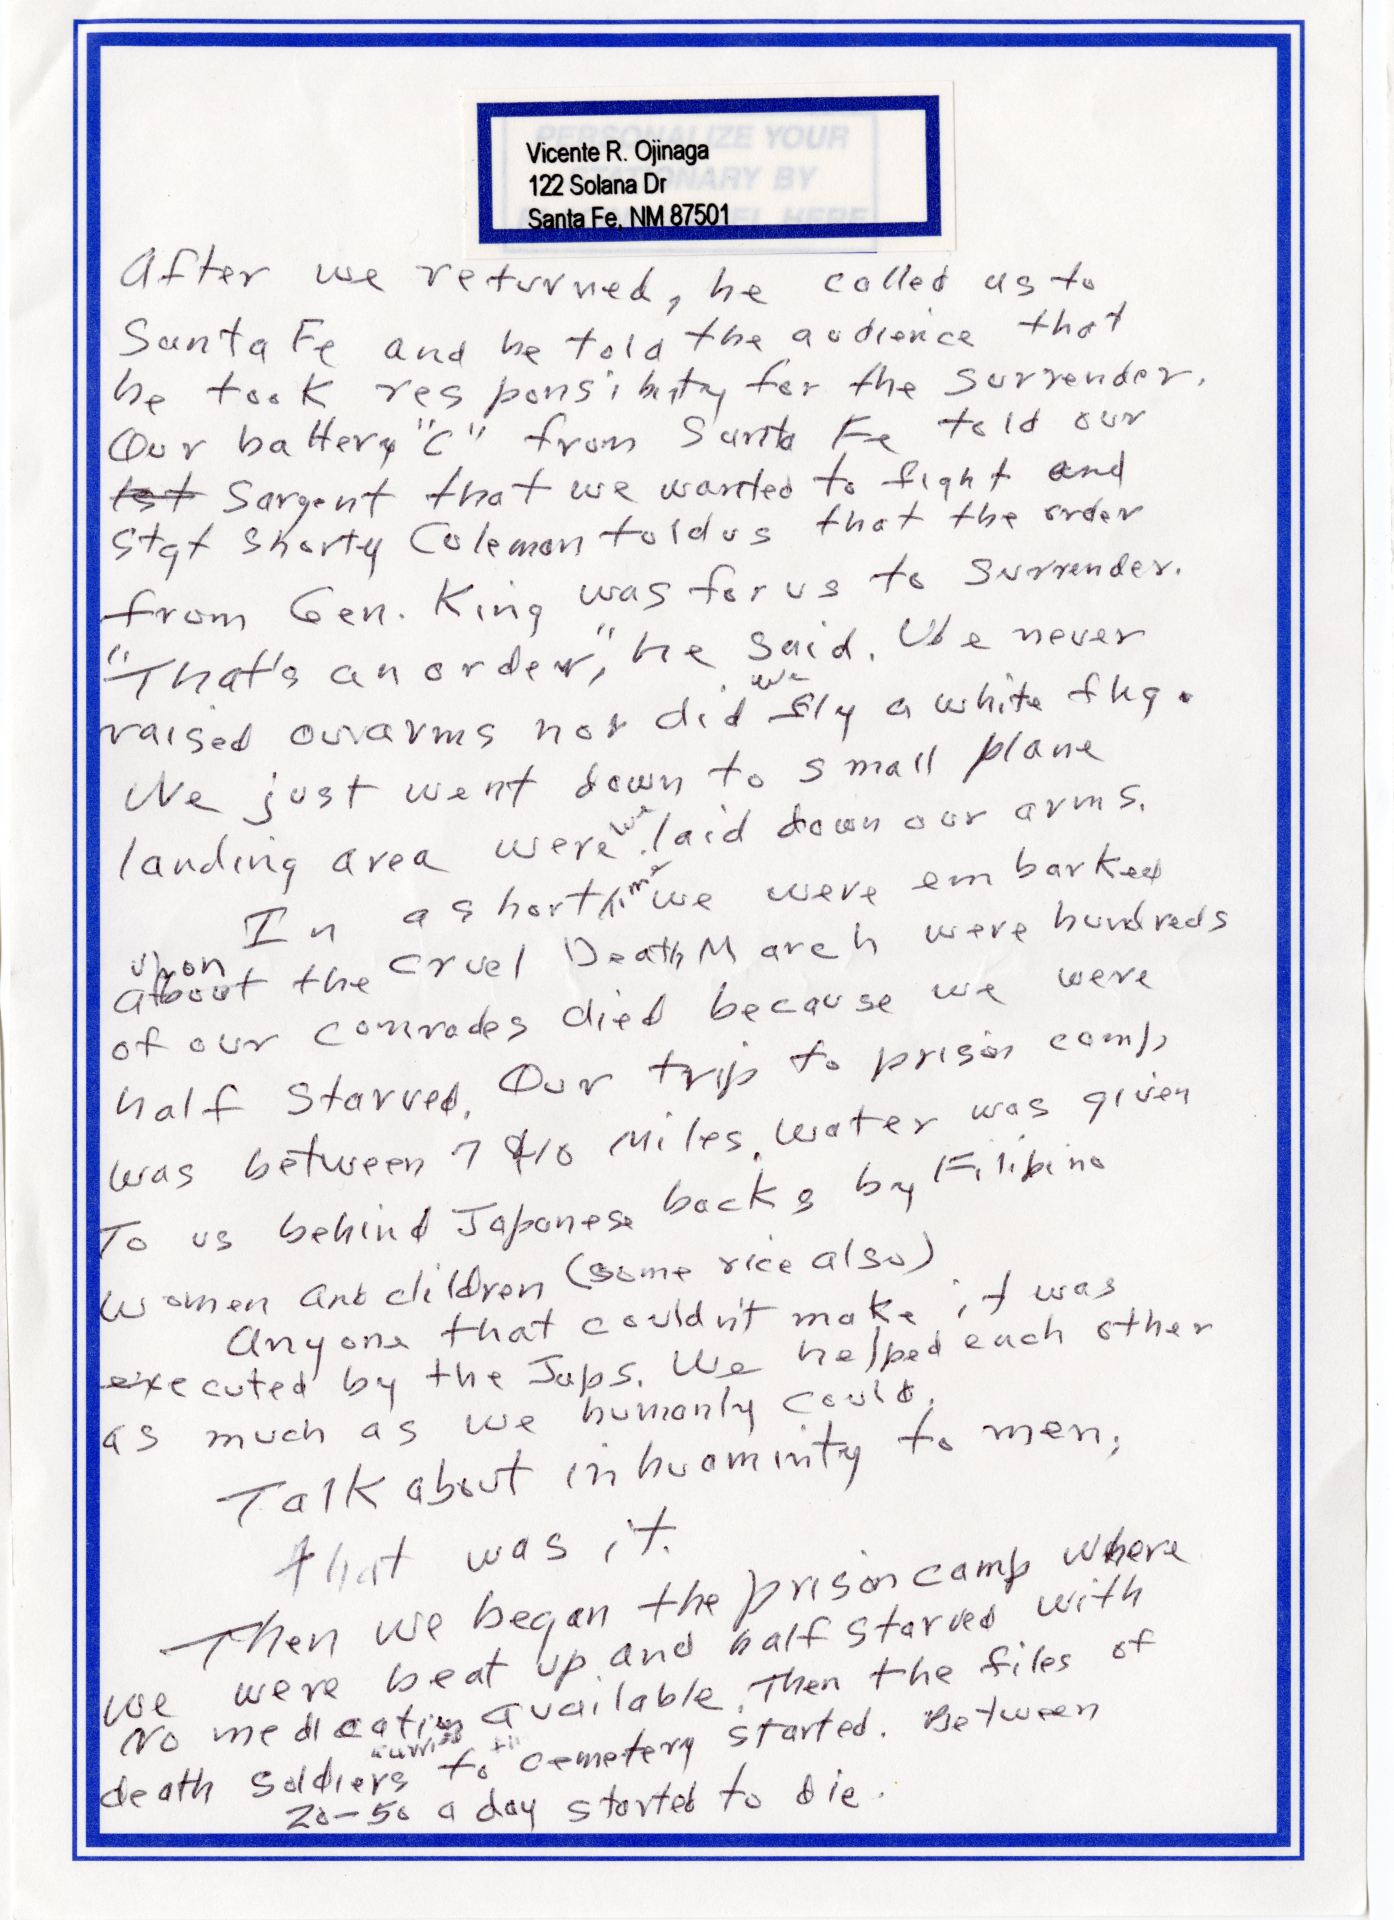 PERSONALIZE YOUR
STATIONARY BY
LABEL HERE
Vicente R. Ojinaga
122 Solana Dr
Santa Fe, NM 87501
After we returned, he called us to
Santa Fe and he told the audience that
he took responsibity for the surrender.
Our battery "C" from Santa Fe told our
1st Sargent that we wanted to fight and
Stgt Shorty Coleman told us that the order
from Gen. King was for us to surrender.
"That's an order," he said. We never
raised our arms nor did we fly a white flag.
We just went down to small plane
landing area were we laid down our arms.
In a short time we were embarked
upon
about the cruel Death March were hundreds
of our comrades died because we were
half starved. Our trip to prison camp
was between 7 & 10 miles. Water was given
To us behind Japanese backs by Filipino
women and children (some rice also)
Anyone that couldn't make it was
executed by the Japs. We helped each other
as much as we humanly could.
Talk about inhuominity to men;
that was it.
Then we began the prison camp where
we were beat up and half starved with
No medication available. Then the files of
death soldiers to cemetery started. Between
20-50 a day started to die.